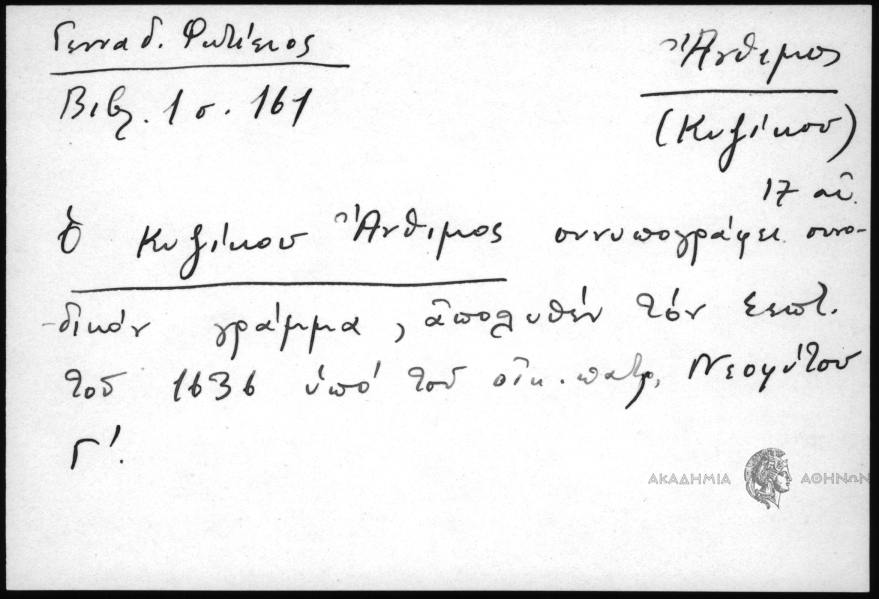 Γενναδ. Φωτίειος
Βιβλ. 1 σ. 161
Ἄνθιμος
(Κυζίκου)
17 αἰ.
Ὁ Κυζίκου Ἄνθιμος συνυπογράφει συνο-
δικόν γράμμα, ἀπολυθέν τόν Σεπτ.
τοῦ 1636 ὑπό τοῦ οἰκ. πατρ. Νεοφύτου
Γ'.
ΑΚΑΔΗΜΙΑ ΑΘΗΝΩΝ